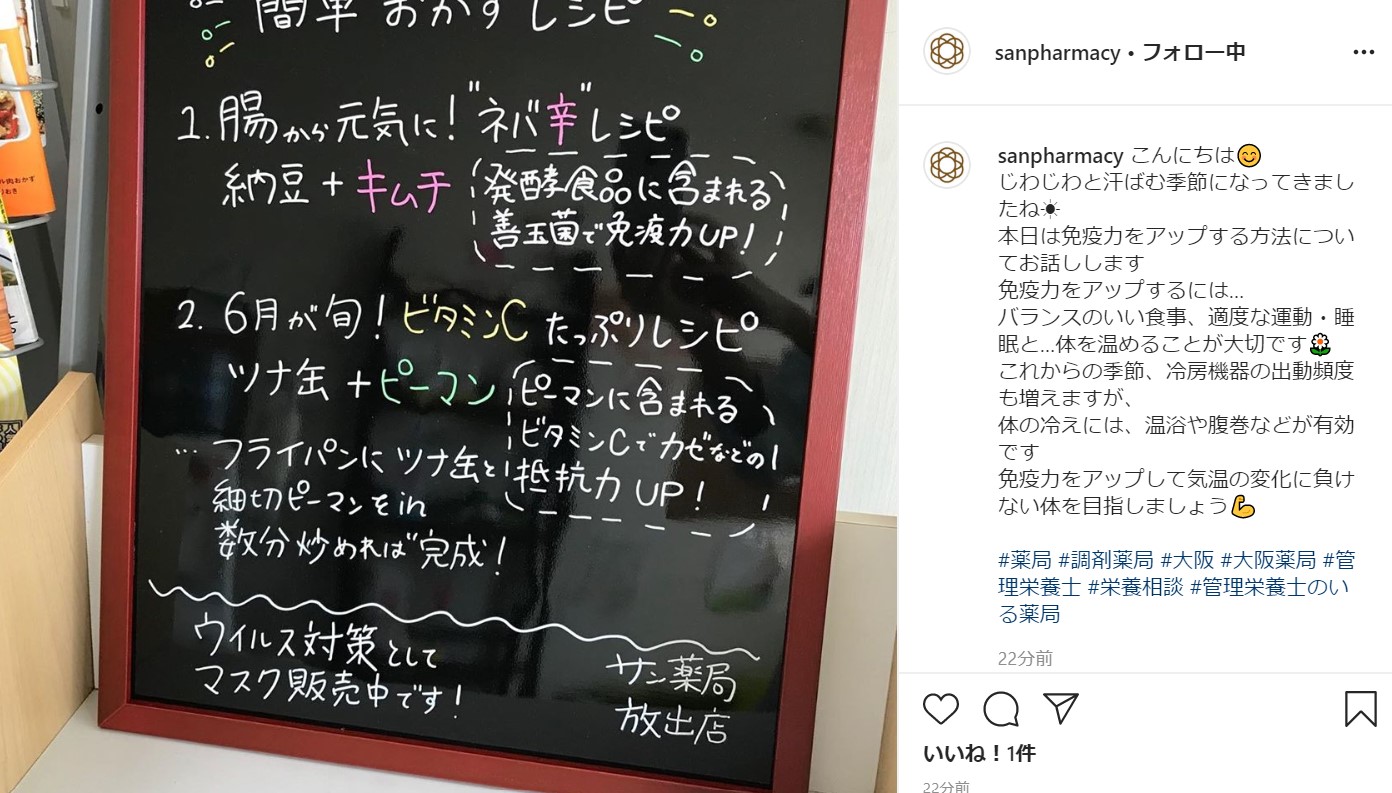 簡単おかずレシピ
1. 腸から元気に！"ネバ辛"レシピ
納豆＋キムチ
発酵食品に含まれる
善玉菌で免疫力UP！
2. 6月が旬！ビタミンCたっぷりレシピ
ツナ缶＋ピーマン
ピーマンに含まれる
ビタミンCでカゼなどの
抵抗力UP！
…フライパンにツナ缶と
細切ピーマンをin
数分炒めれば完成！
ウイルス対策として
マスク販売中です！
サン薬局
放出店
sanpharmacy • フォロー中
sanpharmacy こんにちは😊
じわじわと汗ばむ季節になってきまし
たね☀
本日は免疫力をアップする方法につい
てお話しします
免疫力をアップするには...
バランスのいい食事、適度な運動・睡
眠と...体を温めることが大切です🌼
これからの季節、冷房機器の出動頻度
も増えますが、
体の冷えには、温浴や腹巻などが有効
です
免疫力をアップして気温の変化に負け
ない体を目指しましょう💪
#薬局 #調剤薬局 #大阪 #大阪薬局 #管
理栄養士 #栄養相談 #管理栄養士のい
る薬局
22分前
いいね！1件
22分前